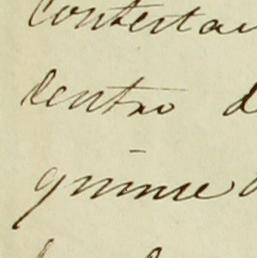 contestar
dentro d
quince